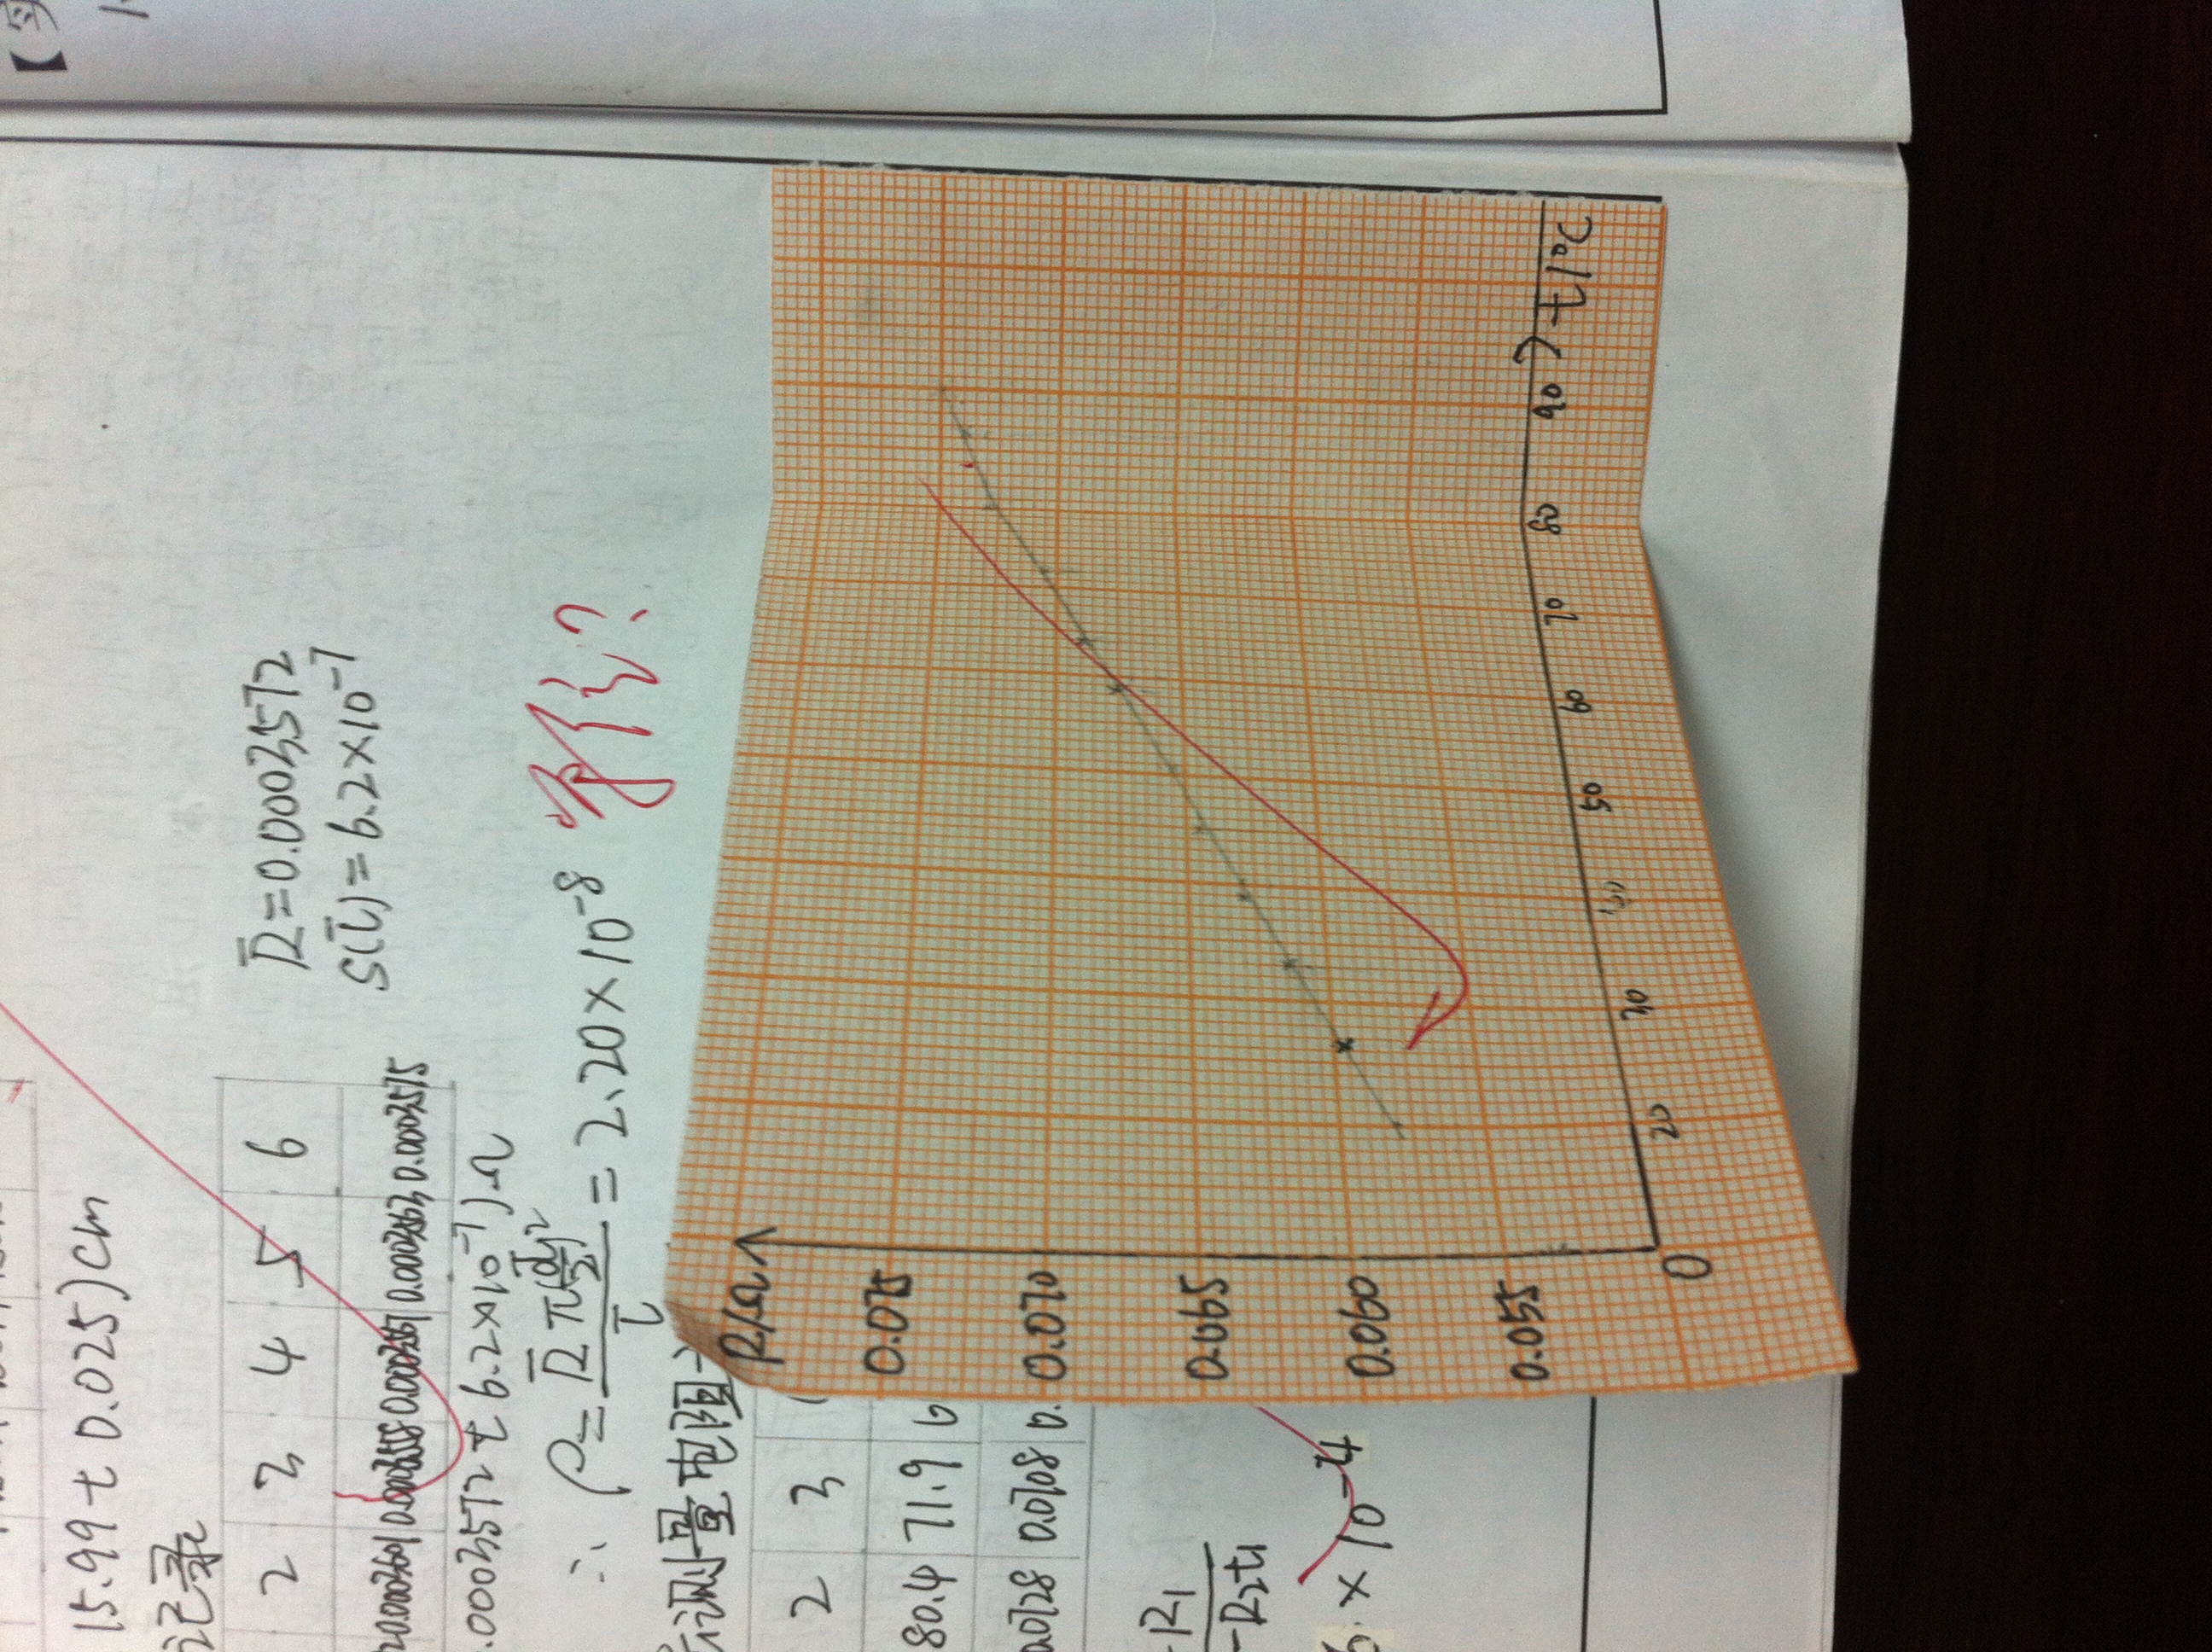 15.99 ± 0.025)cm
记录
2 3 4 5 6
0.0003601 0.0003558 0.0003567 0.0003563 0.0003575
R̄=0.0003572
S(l̄)=6.2×10⁻⁷
.0003572 ± 6.2×10⁻⁷)Ω
∴ ρ = R̄π(d̄/2)²/l̄ = 2.20×10⁻⁸ 单位?
测量电阻
2 3
80.4 71.9 6
0.0728 0.0708 0.
-R₁
-R₂t₁
6.×10⁻⁴
R/Ω
0.075
0.070
0.065
0.060
0.055
0 20 30 40 50 60 70 80 90 t/°C
【实